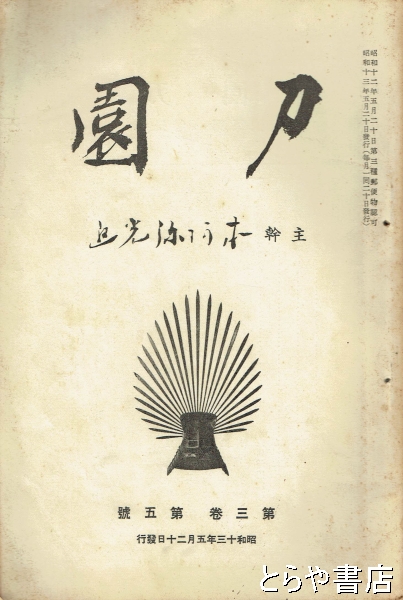 昭和十二年五月二十日第三種郵便物認可
昭和十三年五月二十日發行(毎月一回二十日發行)
刀園
主幹 本阿弥光遜
第三卷 第五號
昭和十三年五月二十日發行
とらや書店